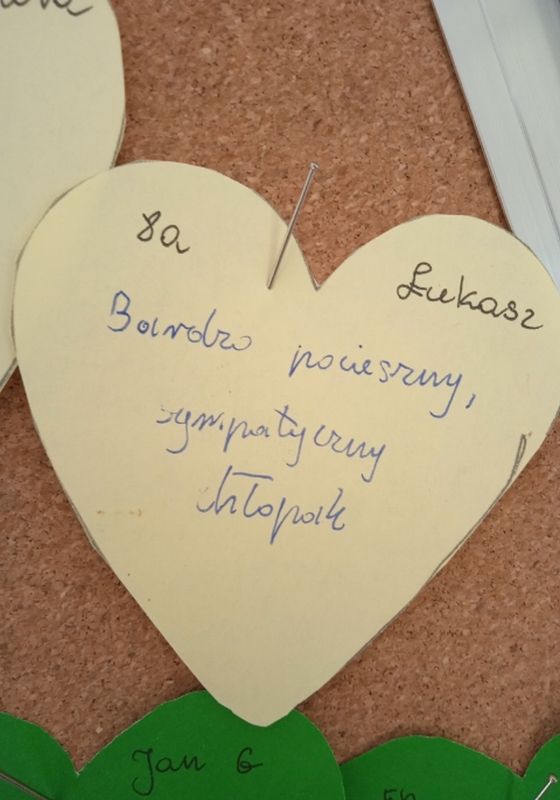 8a
Łukasz
Bardzo pocieszny,
sympatyczny
chłopak
Jan G